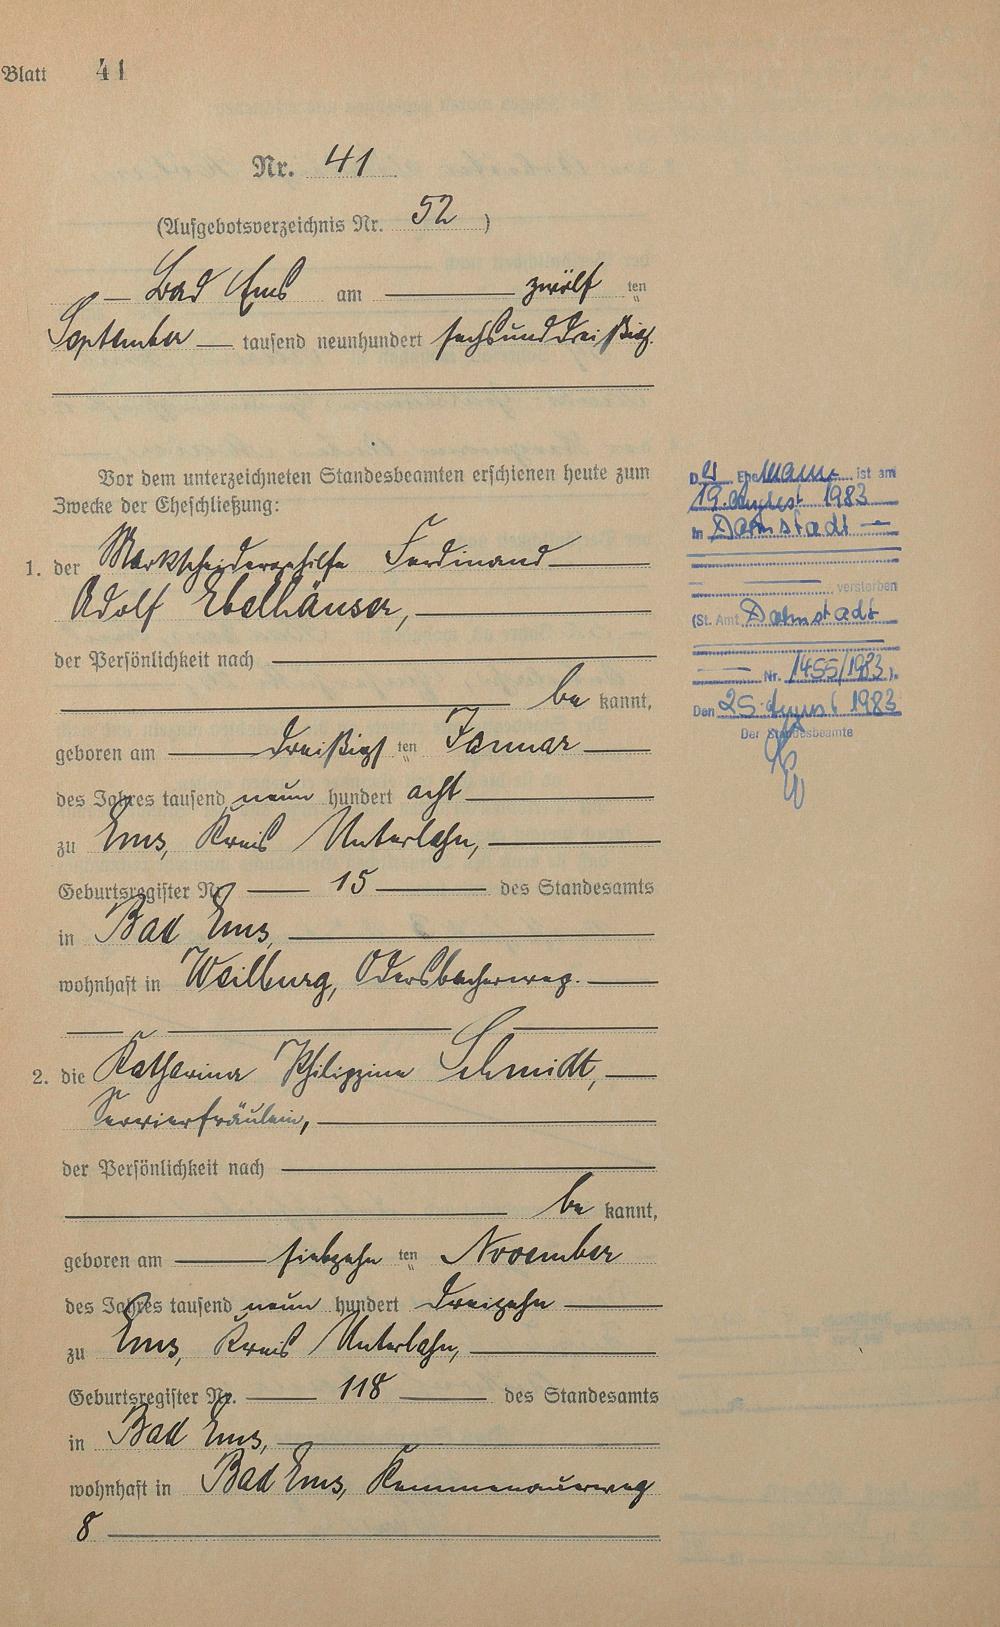 Blatt 41
Nr. 41
(Aufgebotsverzeichnis Nr. 52)
Bad Ems am zwölf ten
September tausend neunhundert sechsunddreißig.
Vor dem unterzeichneten Standesbeamten erschienen heute zum
Zwecke der Eheschließung:
1. der Markscheidergehilfe Ferdinand
Adolf Ebelhäuser,
der Persönlichkeit nach
be kannt,
geboren am dreißigs ten Januar
des Jahres tausend neun hundert acht
zu Ems, Kreis Unterlahn,
Geburtsregister Nr. 15 des Standesamts
in Bad Ems,
wohnhaft in Weilburg, Odersbacherweg.
2. die Katharina Philippine Schmidt,
Servierfräulein,
der Persönlichkeit nach
be kannt,
geboren am siebzehn ten November
des Jahres tausend neun hundert dreizehn
zu Ems, Kreis Unterlahn,
Geburtsregister Nr. 118 des Standesamts
in Bad Ems,
wohnhaft in Bad Ems, Kemmenauerweg
8
Der Ehemann ist am
19. August 1983
in Darmstadt
verstorben
(St. Amt Darmstadt
Nr. 1455/1983).
Den 25. August 1983
Der Standesbeamte